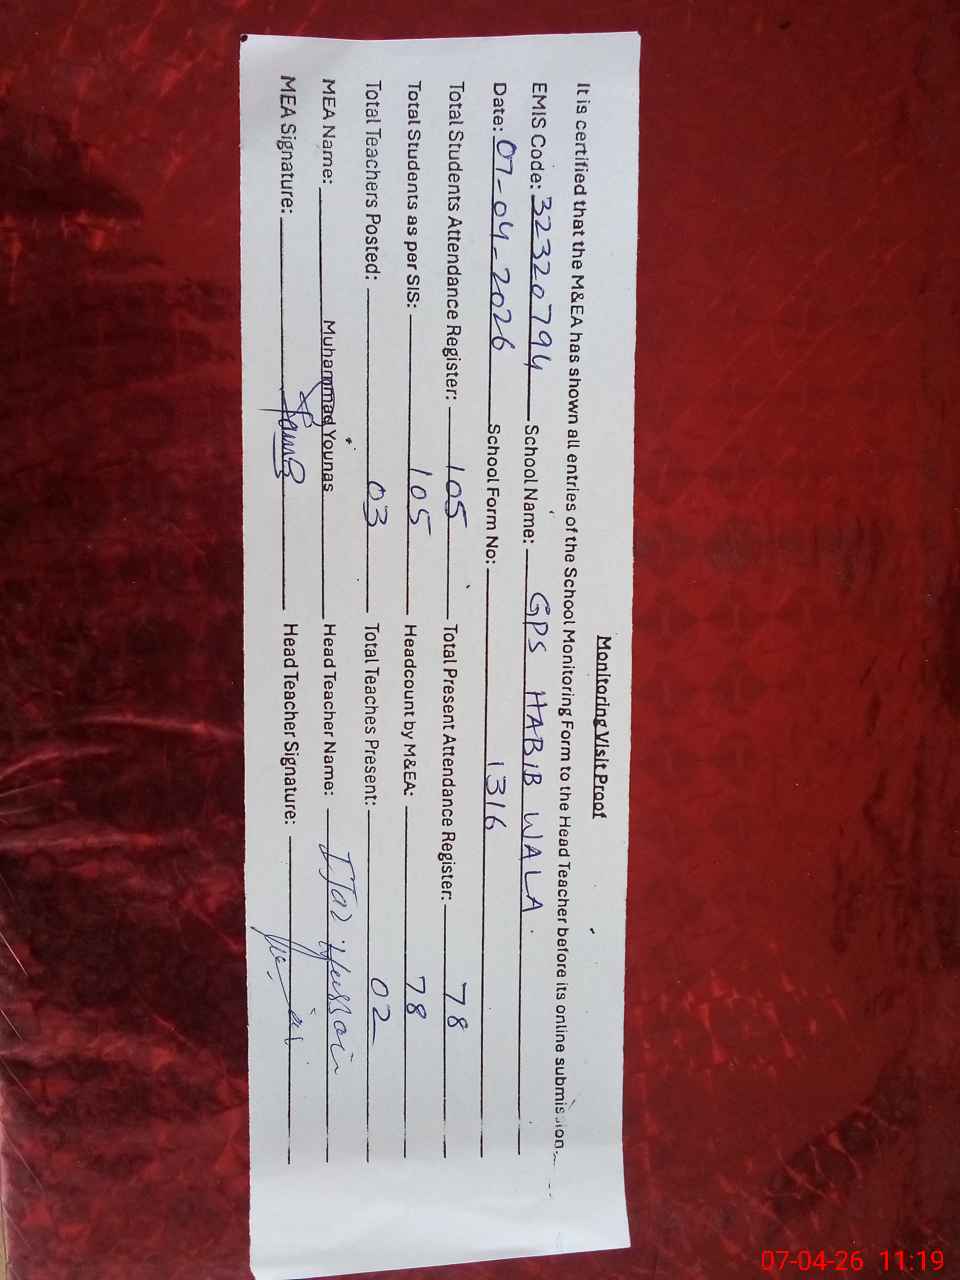 Monitoring Visit Proof
It is certified that the M&EA has shown all entries of the School Monitoring Form to the Head Teacher before its online submission.
EMIS Code: 32320794 School Name: GPS HABIB WALA.
Date: 07-04-2026 School Form No: 1316
Total Students Attendance Register: 105 Total Present Attendance Register: 78
Total Students as per SIS: 105 Headcount by M&EA: 78
Total Teachers Posted: 03 Total Teaches Present: 02
MEA Name: Muhammad Younas Head Teacher Name: Ijaz Hussain
MEA Signature: Head Teacher Signature:
07-04-26 11:19